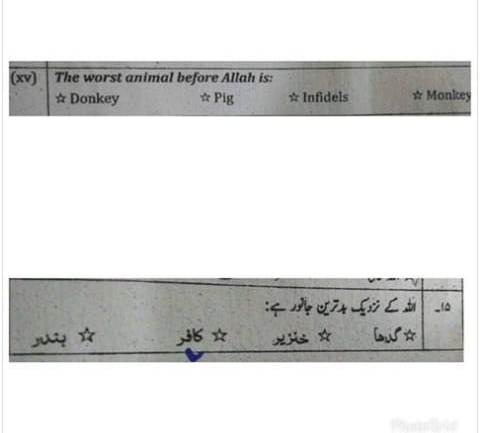 (xv) The worst animal before Allah is:
☆ Donkey ☆ Pig ☆ Infidels ☆ Monkey
۱۵۔ اللہ کے نزدیک بدترین جانور ہے:
☆ گدھا ☆ خنزیر ☆ کافر ☆ بندر
PhotoGrid